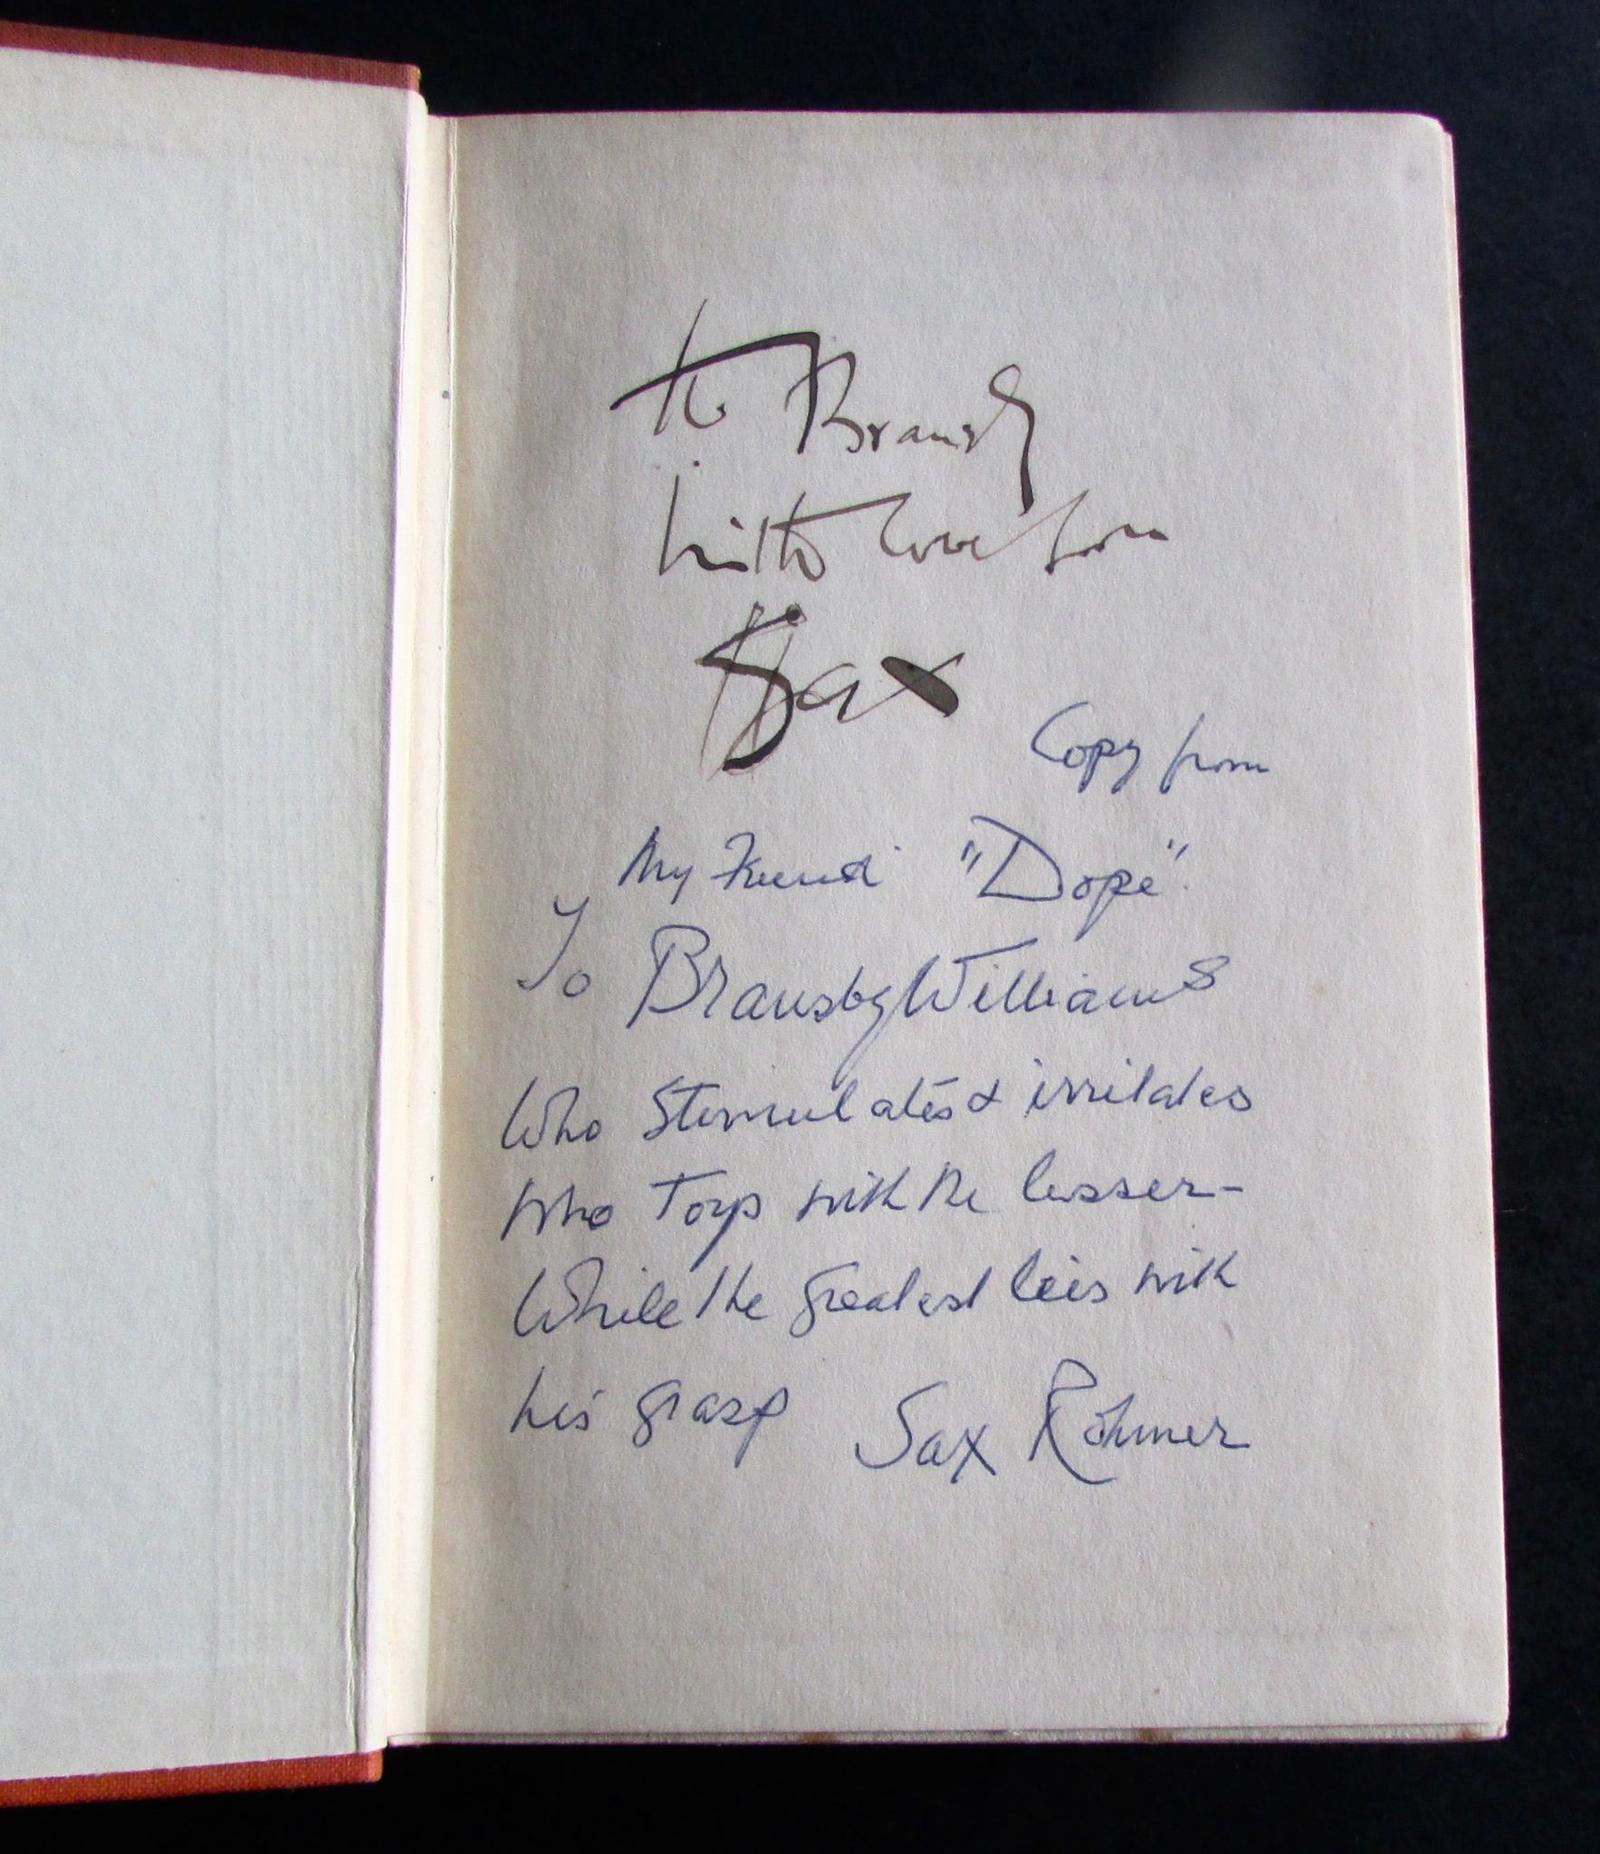 to Bransby
with love from
Sax
Copy from
My Friend "Dope".
To Bransby Williams
Who Stimulates & irritates
Who Toys with the lesser-
While the greatest lies with
his grasp Sax Rohmer